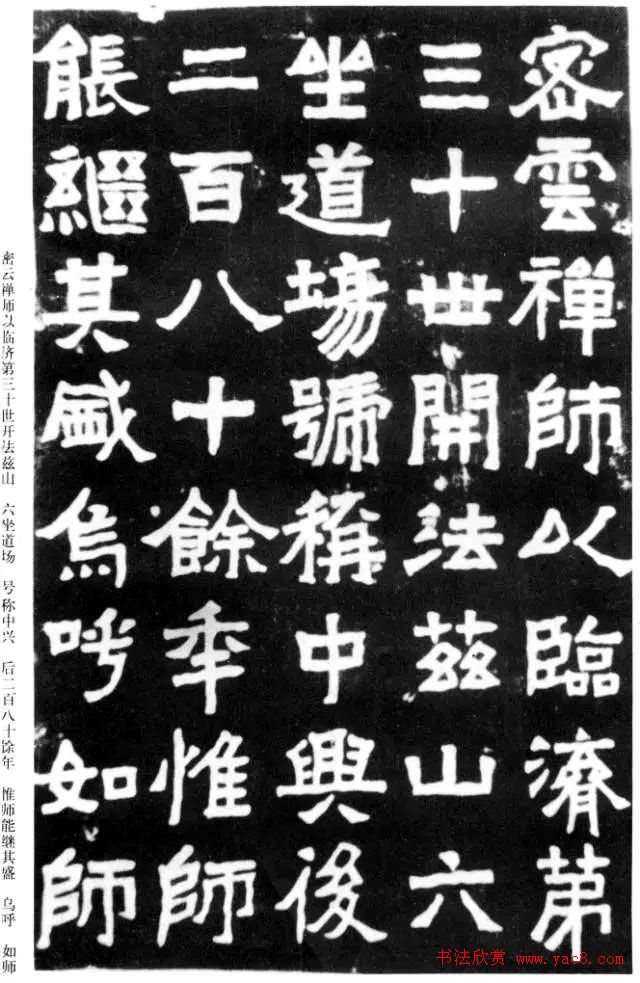 密雲禪師以臨濟第
三十世開法茲山六
坐道場號稱中興後
二百八十餘年惟師
能繼其盛烏呼如師
密云禅师以临济第三十世开法兹山 六坐道场 号称中兴 后二百八十馀年 惟师能继其盛 乌呼 如师
书法欣赏 www.yac8.com